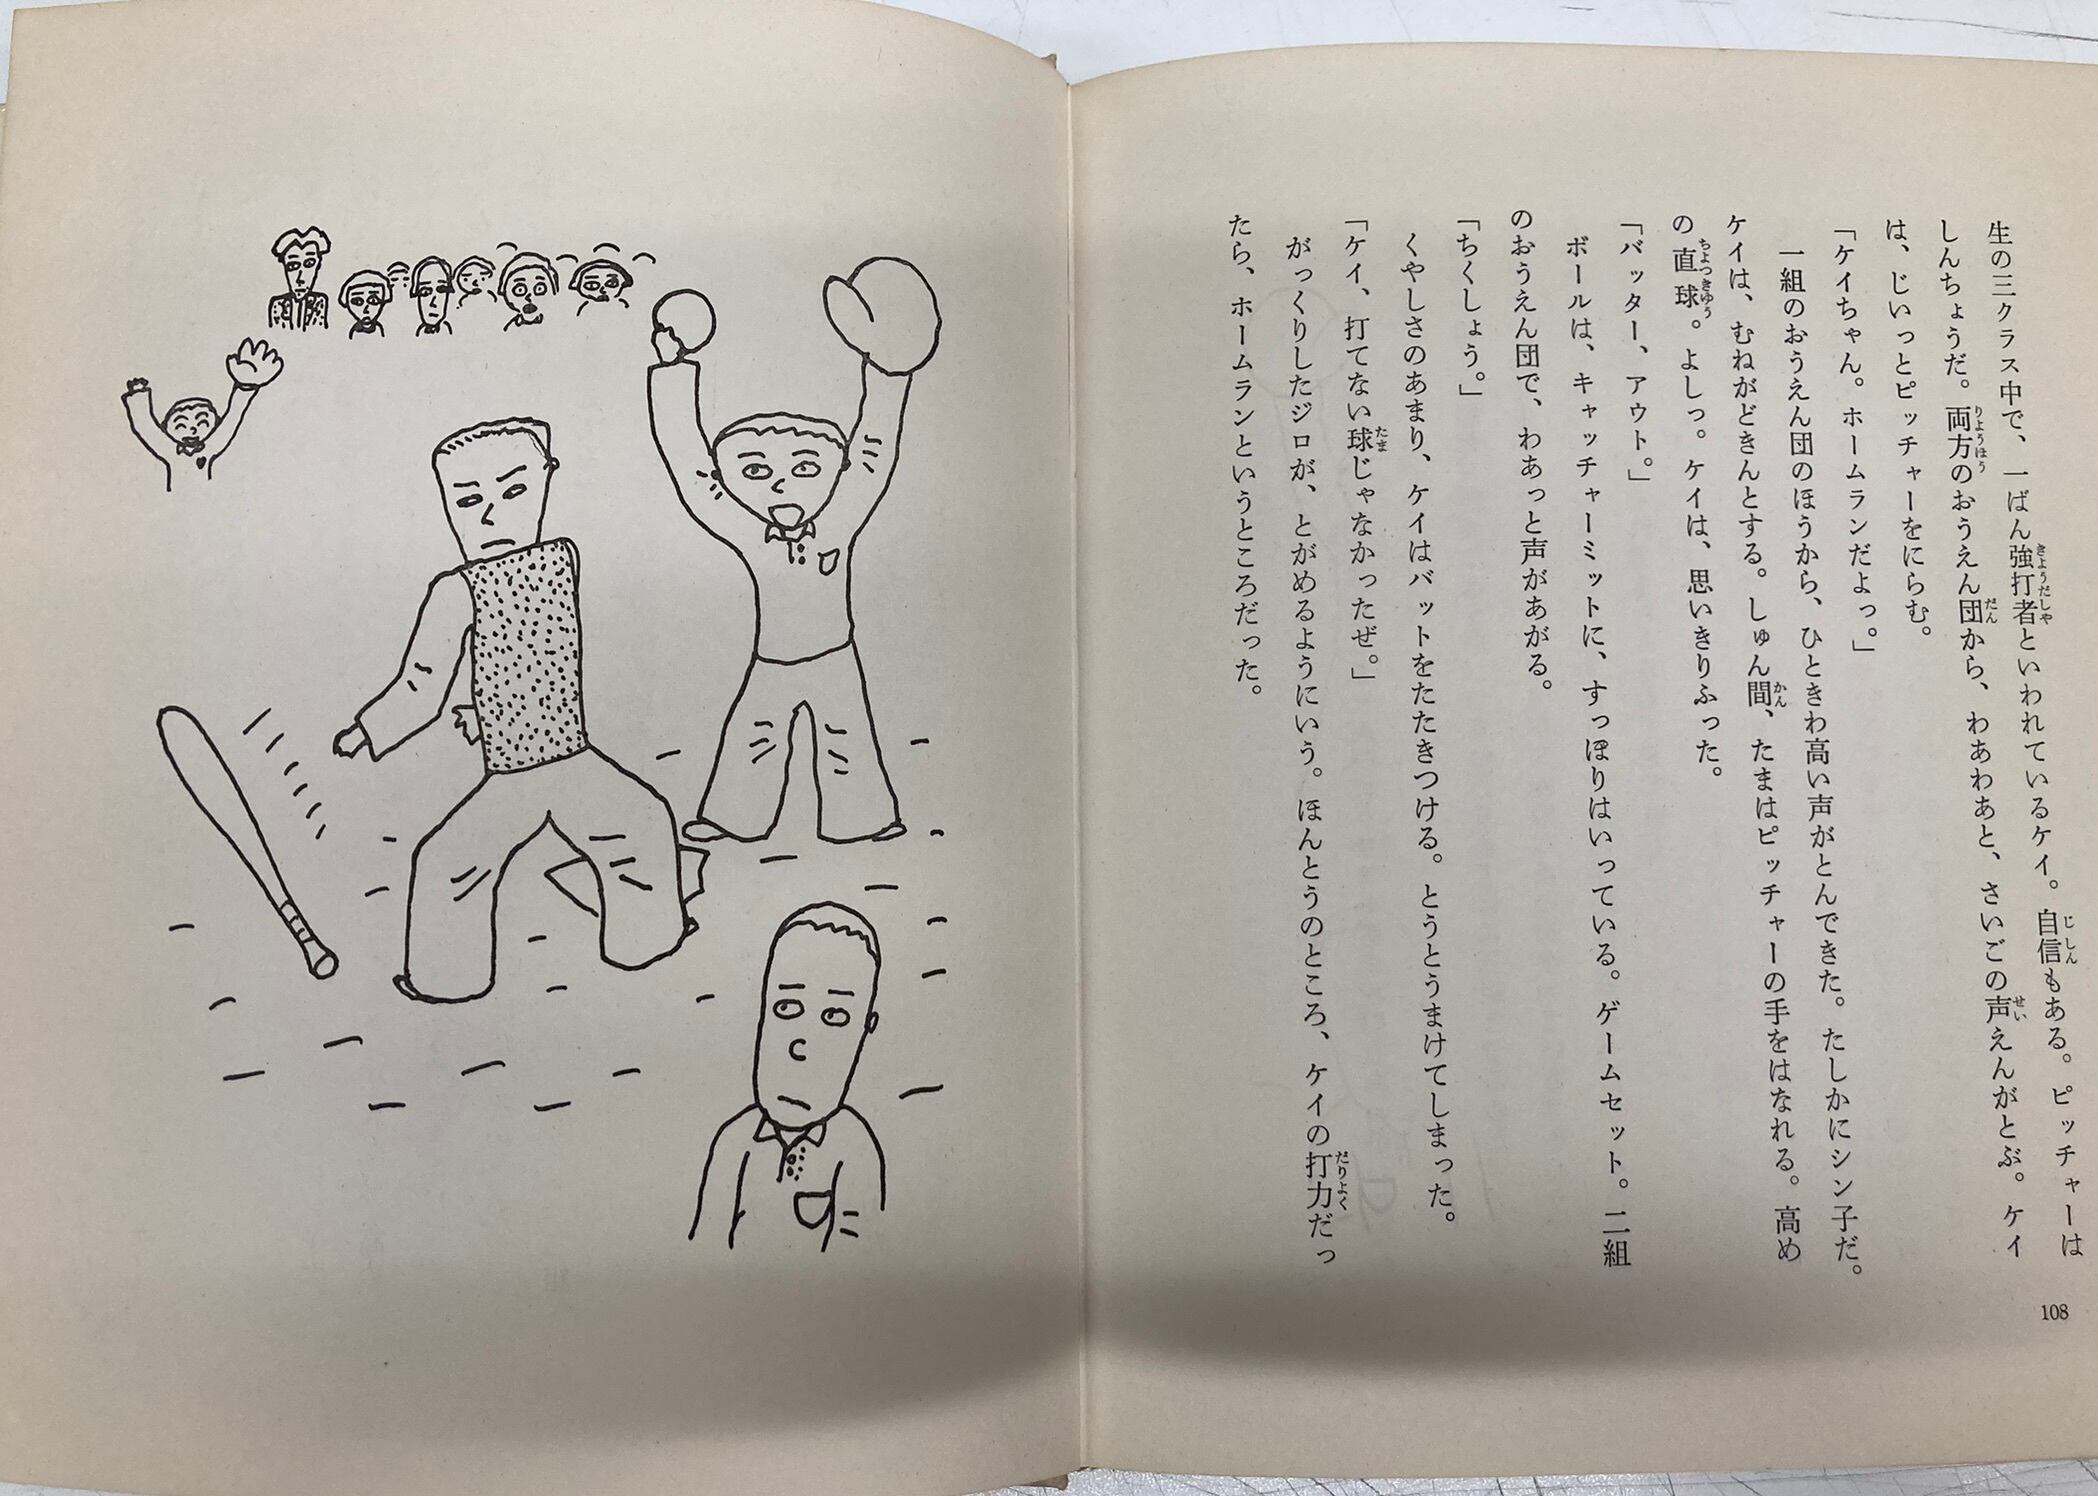 生の三クラス中で、一ばん強打者といわれているケイ。自信もある。ピッチャーは
しんちょうだ。両方のおうえん団から、わあわあと、さいごの声えんがとぶ。ケイ
は、じいっとピッチャーをにらむ。
「ケイちゃん。ホームランだよっ。」
一組のおうえん団のほうから、ひときわ高い声がとんできた。たしかにシン子だ。
ケイは、むねがどきんとする。しゅん間、たまはピッチャーの手をはなれる。高め
の直球。よしっ。ケイは、思いきりふった。
「バッター、アウト。」
ボールは、キャッチャーミットに、すっぽりはいっている。ゲームセット。二組
のおうえん団で、わあっと声があがる。
「ちくしょう。」
くやしさのあまり、ケイはバットをたたきつける。とうとうまけてしまった。
「ケイ、打てない球じゃなかったぜ。」
がっくりしたジロが、とがめるようにいう。ほんとうのところ、ケイの打力だっ
たら、ホームランというところだった。
108